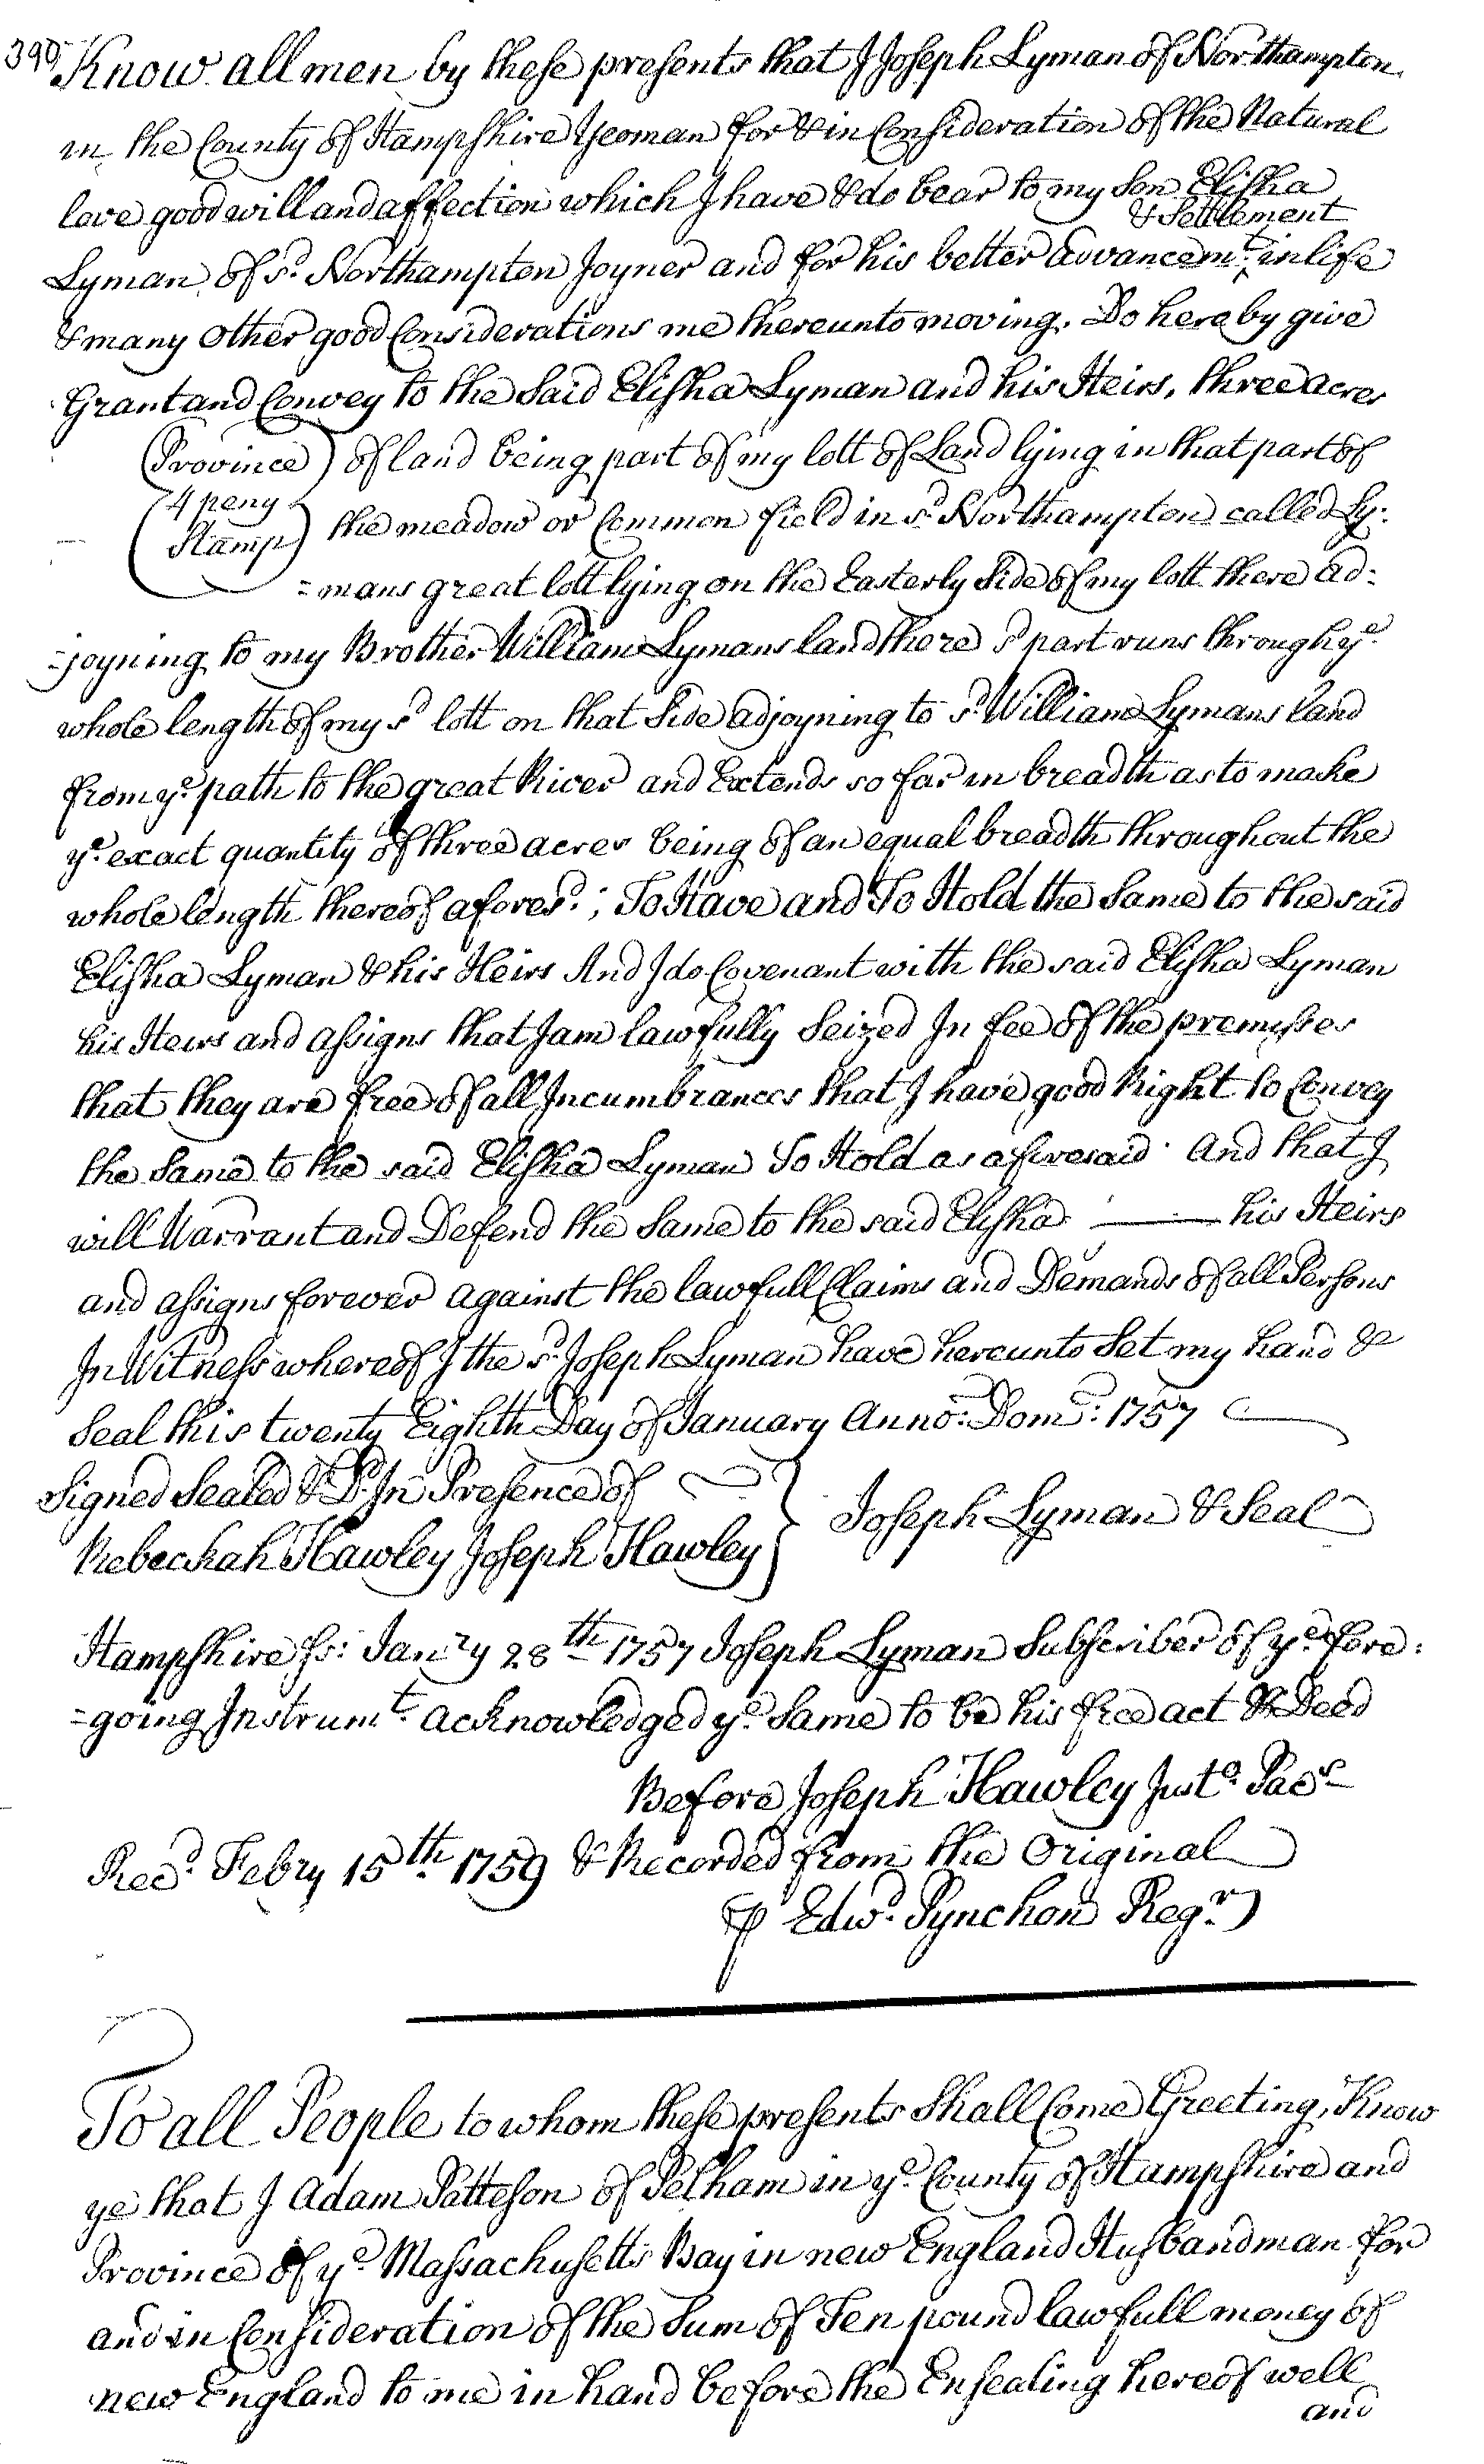 390
Know all men by these presents that I Joseph Lyman of Northampton
in the County of Hampshire Yeoman for & in Consideration of the Natural
love good will and affection which I have & do bear to my Son Elisha
& Settlement
Lyman of sd. Northampton Joyner and for his better advancemt. ^ in life
& many other good Considerations me thereunto moving. Do hereby give
Grant and Convey to the Said Elisha Lyman and his Heirs, three acres
(Province) of land being part of my lott of Land lying in that part of
(4 peny Stamp) the meadow or Common field in sd. Northampton called Ly:
=mans great lott lying on the Easterly Side of my lott there ad:
=joyning to my Brother William Lymans land there sd part runs through ye.
whole length of my sd lott on that Side adjoyning to sd. William Lymans land
from ye. path to the great River and Extends so far in breadth as to make
ye. exact quantity of three acres being of an equal breadth throughout the
whole length thereof aforesd.; To Have and To Hold the Same to the said
Elisha Lyman & his Heirs And I do Covenant with the said Elisha Lyman
his Heirs and assigns that I am lawfully Seized In fee of the premisses
that they are free of all Incumbrances that I have good Right to Convey
the Same to the said Elisha Lyman To Hold as aforesaid. And that I
will Warrant and Defend the Same to the said Elisha —— his Heirs
and assigns forever against the lawfull Claims and Demands of all Persons
In Witness whereof I the sd. Joseph Lyman have hereunto Set my hand &
Seal this twenty Eighth Day of January Anno: Domd: 1757
Signed Sealed & Dd. In Presence of
Rebeckah Hawley Joseph Hawley } Joseph Lyman & Seal
Hampshire ss: Janry 28th 1757 Joseph Lyman Subscriber of ye. fore:
=going Instrumt. acknowledged ye. Same to be his free act & Deed
Before Joseph Hawley Juste. Pacs
Recd. Febry 15th. 1759 & Recorded from the Original
⅌ Edwd. Pynchon Regr.
To all People to whom these presents Shall Come Greeting, Know
ye that I Adam Patteson of Pelham in ye. County of Hampshire and
Province of ye. Massachusetts Bay in new England Husbandman for
and in Consideration of the Sum of Ten pound lawfull money of
new England to me in hand before the Ensealing hereof well
and